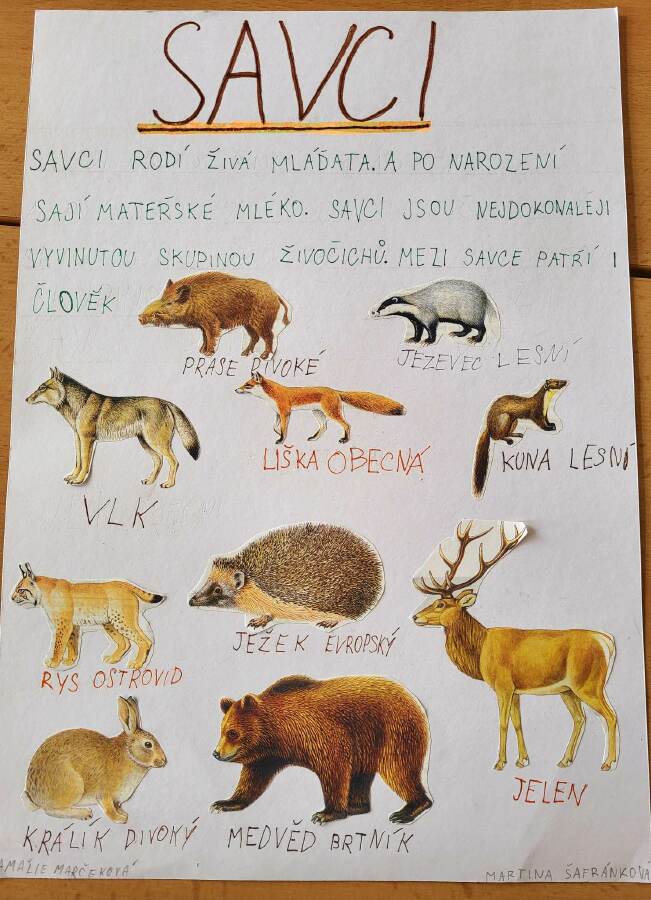 SAVCI
SAVCI RODÍ ŽIVÁ MLÁĎATA. A PO NAROZENÍ
SAJÍ MATEŘSKÉ MLÉKO. SAVCI JSOU NEJDOKONALEJI
VYVINUTOU SKUPINOU ŽIVOČICHŮ. MEZI SAVCE PATŘÍ I
ČLOVĚK
PRASE DIVOKÉ
JEZEVEC LESNÍ
LIŠKA OBECNÁ
KUNA LESNÍ
VLK
JEŽEK EVROPSKÝ
RYS OSTROVID
JELEN
KRÁLÍK DIVOKÝ
MEDVĚD BRTNÍK
AMÁLIE MARČEKOVÁ
MARTINA ŠAFRÁNKOVÁ